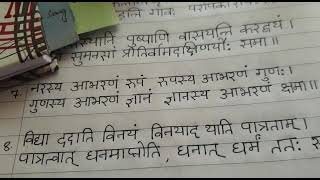 गावः परोपकारा
पुष्पाणि वासयन्ति करद्वयम् ।
सुमनसां प्रीतिर्वामदक्षिणयोः समा ॥
7. नरस्य आभरणं रूपं रूपस्य आभरणं गुणः ।
गुणस्य आभरणं ज्ञानं ज्ञानस्य आभरणं क्षमा ॥
8. विद्या ददाति विनयं विनयाद् याति पात्रताम् ।
पात्रत्वात् धनमाप्नोति , धनात् धर्मं ततः